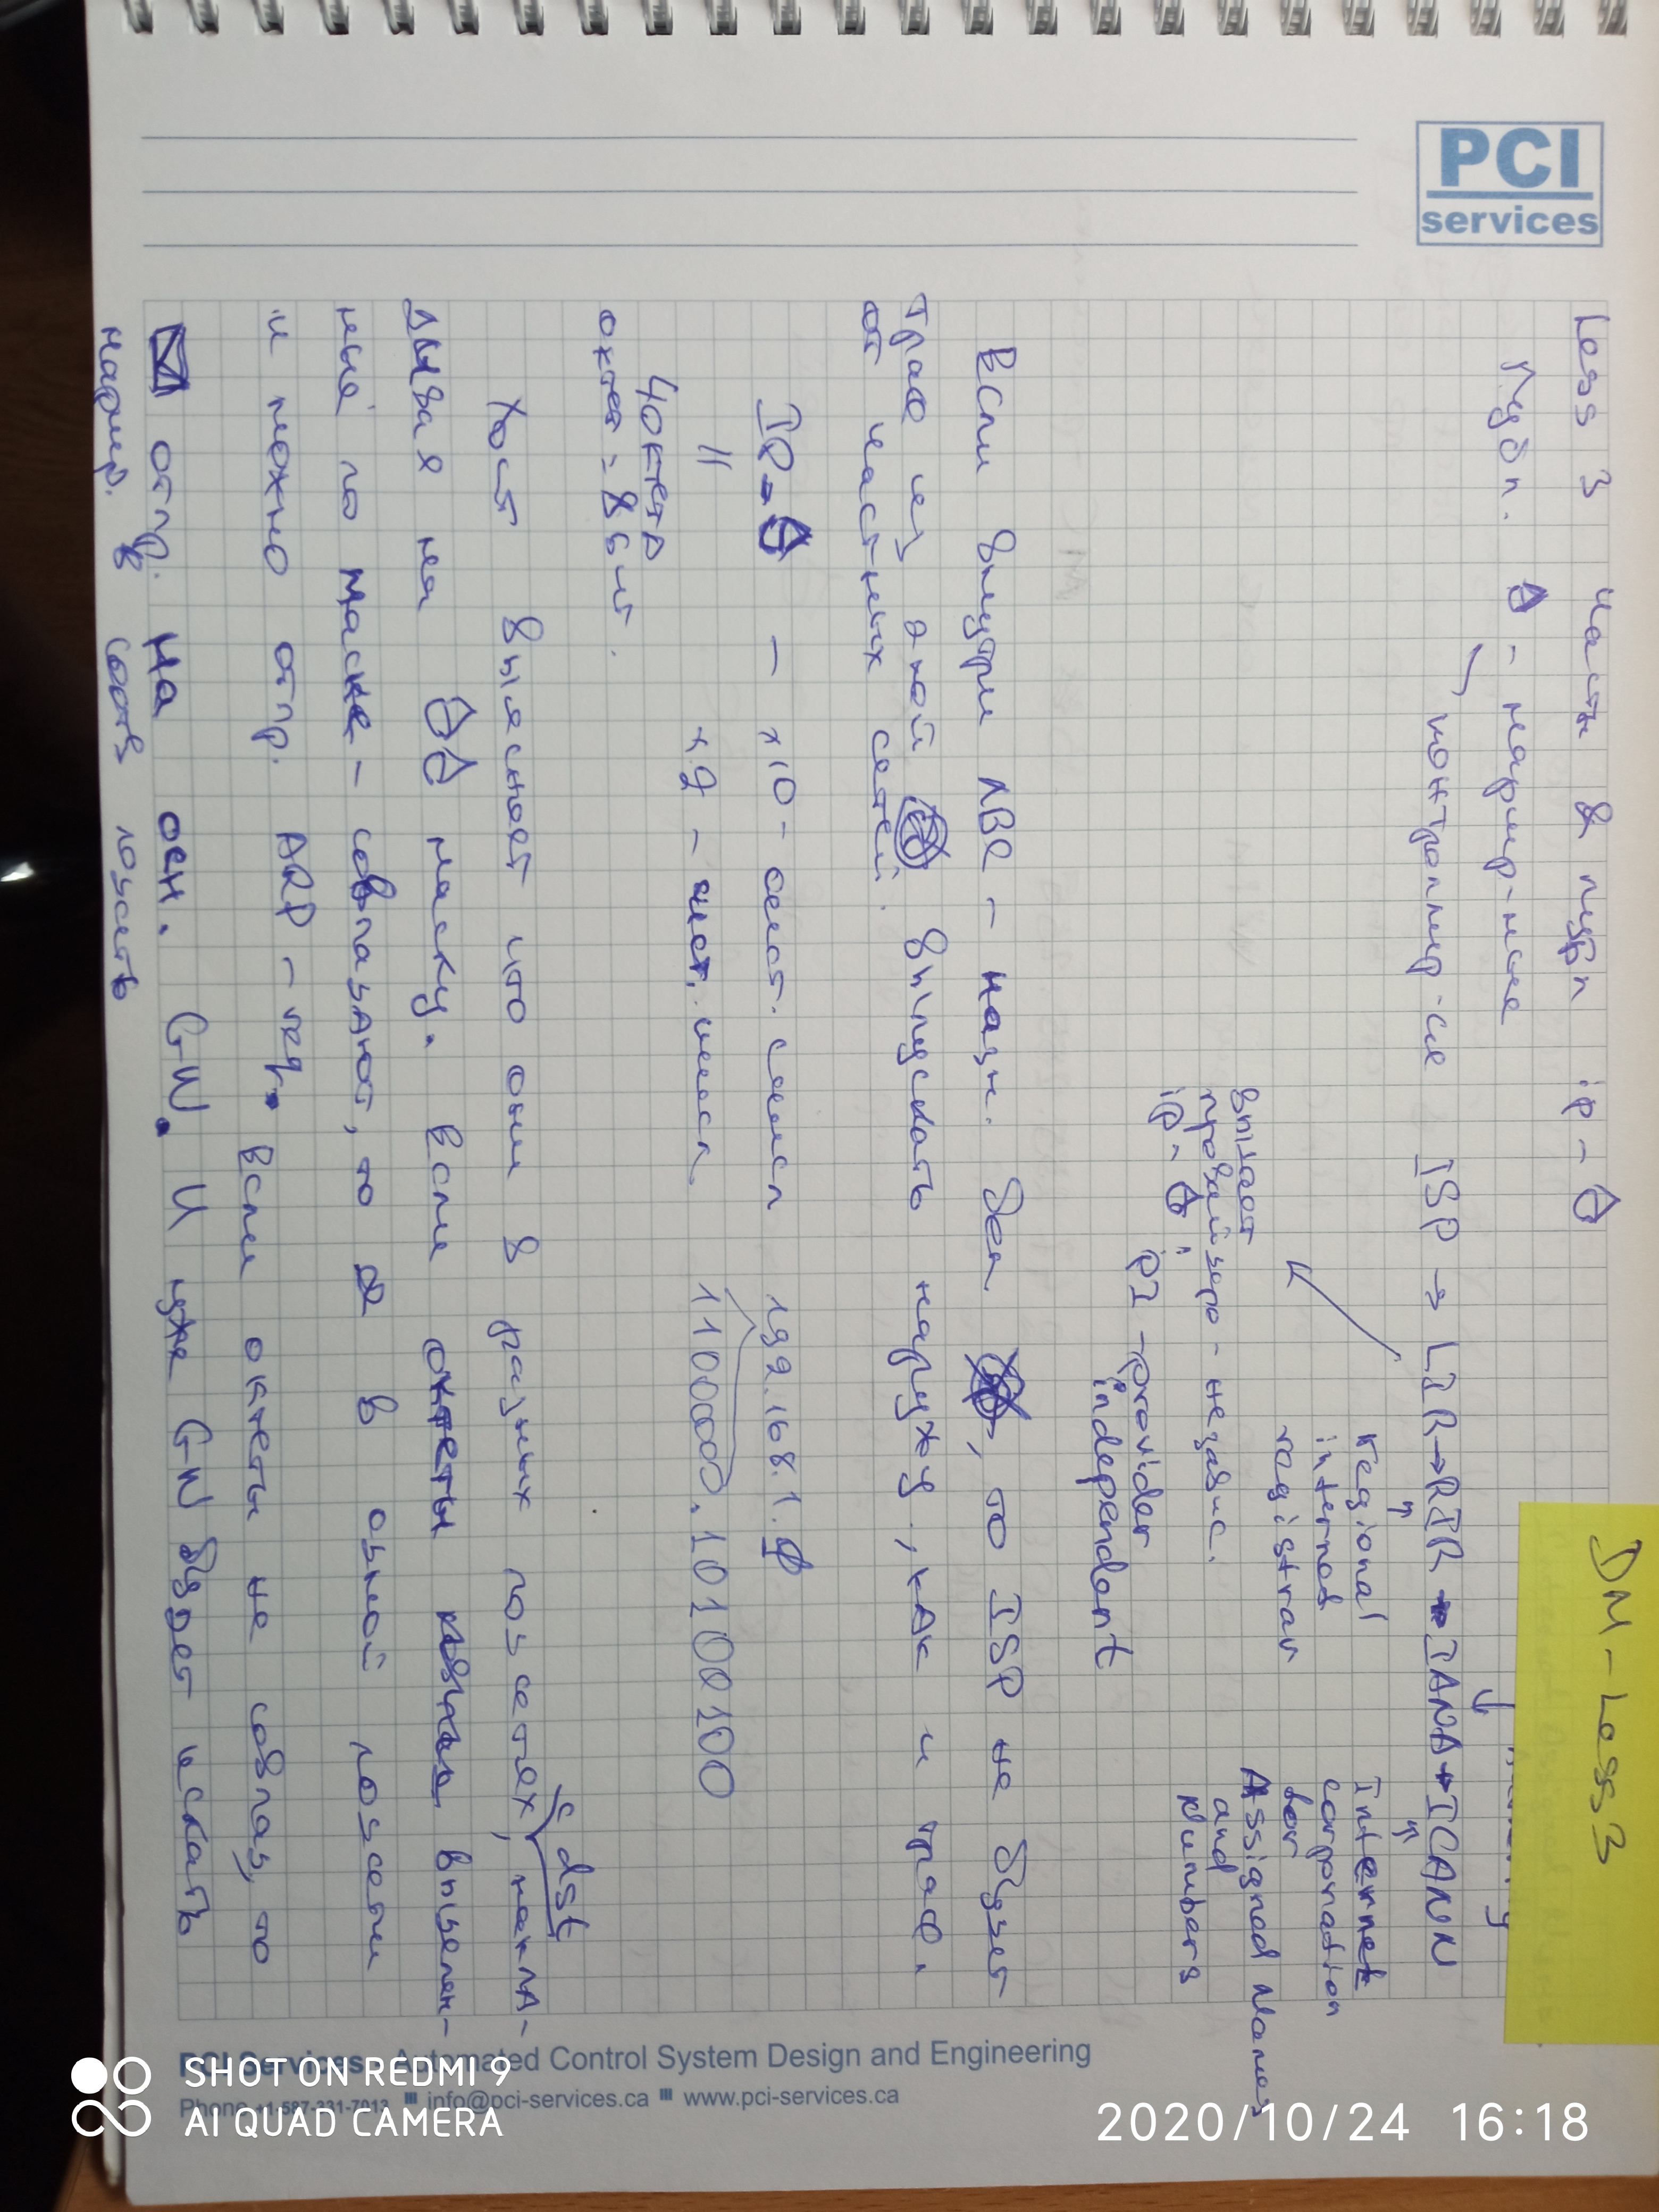 DM - Less 3
PCI services
Less 3 Частн & публ ip -
Публ. - маршр-мые
Authority
контроллир-ся ISP → LIR → RIR → IANA → ICANN
regional
internet
registrar
Internet
corporation
for
Assigned Names
and
Numbers
выдает
провайдеро - независ.
ip - :
PI - provider
independent
Если внутри ЛВС - назн. бел , то ISP не будет
траф из этой выпускать наружу, как и траф.
от частных сетей.
IP - - x10 - сист. числ 192.168.1.0
||
x2 - сист. числ 11000000.10100100
4 октета
октет = 8 бит.
с dst
Хост выясняет что они в разных подсетях, накла-
дывая на маску. Если октеты выделен-
ные по маске - совпадают, то в одной подсети
и можно отпр. ARP - req. Если октеты не совпад, то
отпр. на осн. GW. И уже GW будет искать
маршр. в соотв подсеть
PCI Services Automated Control System Design and Engineering
info@pci-services.ca www.pci-services.ca
SHOT ON REDMI 9
AI QUAD CAMERA
2020/10/24 16:18